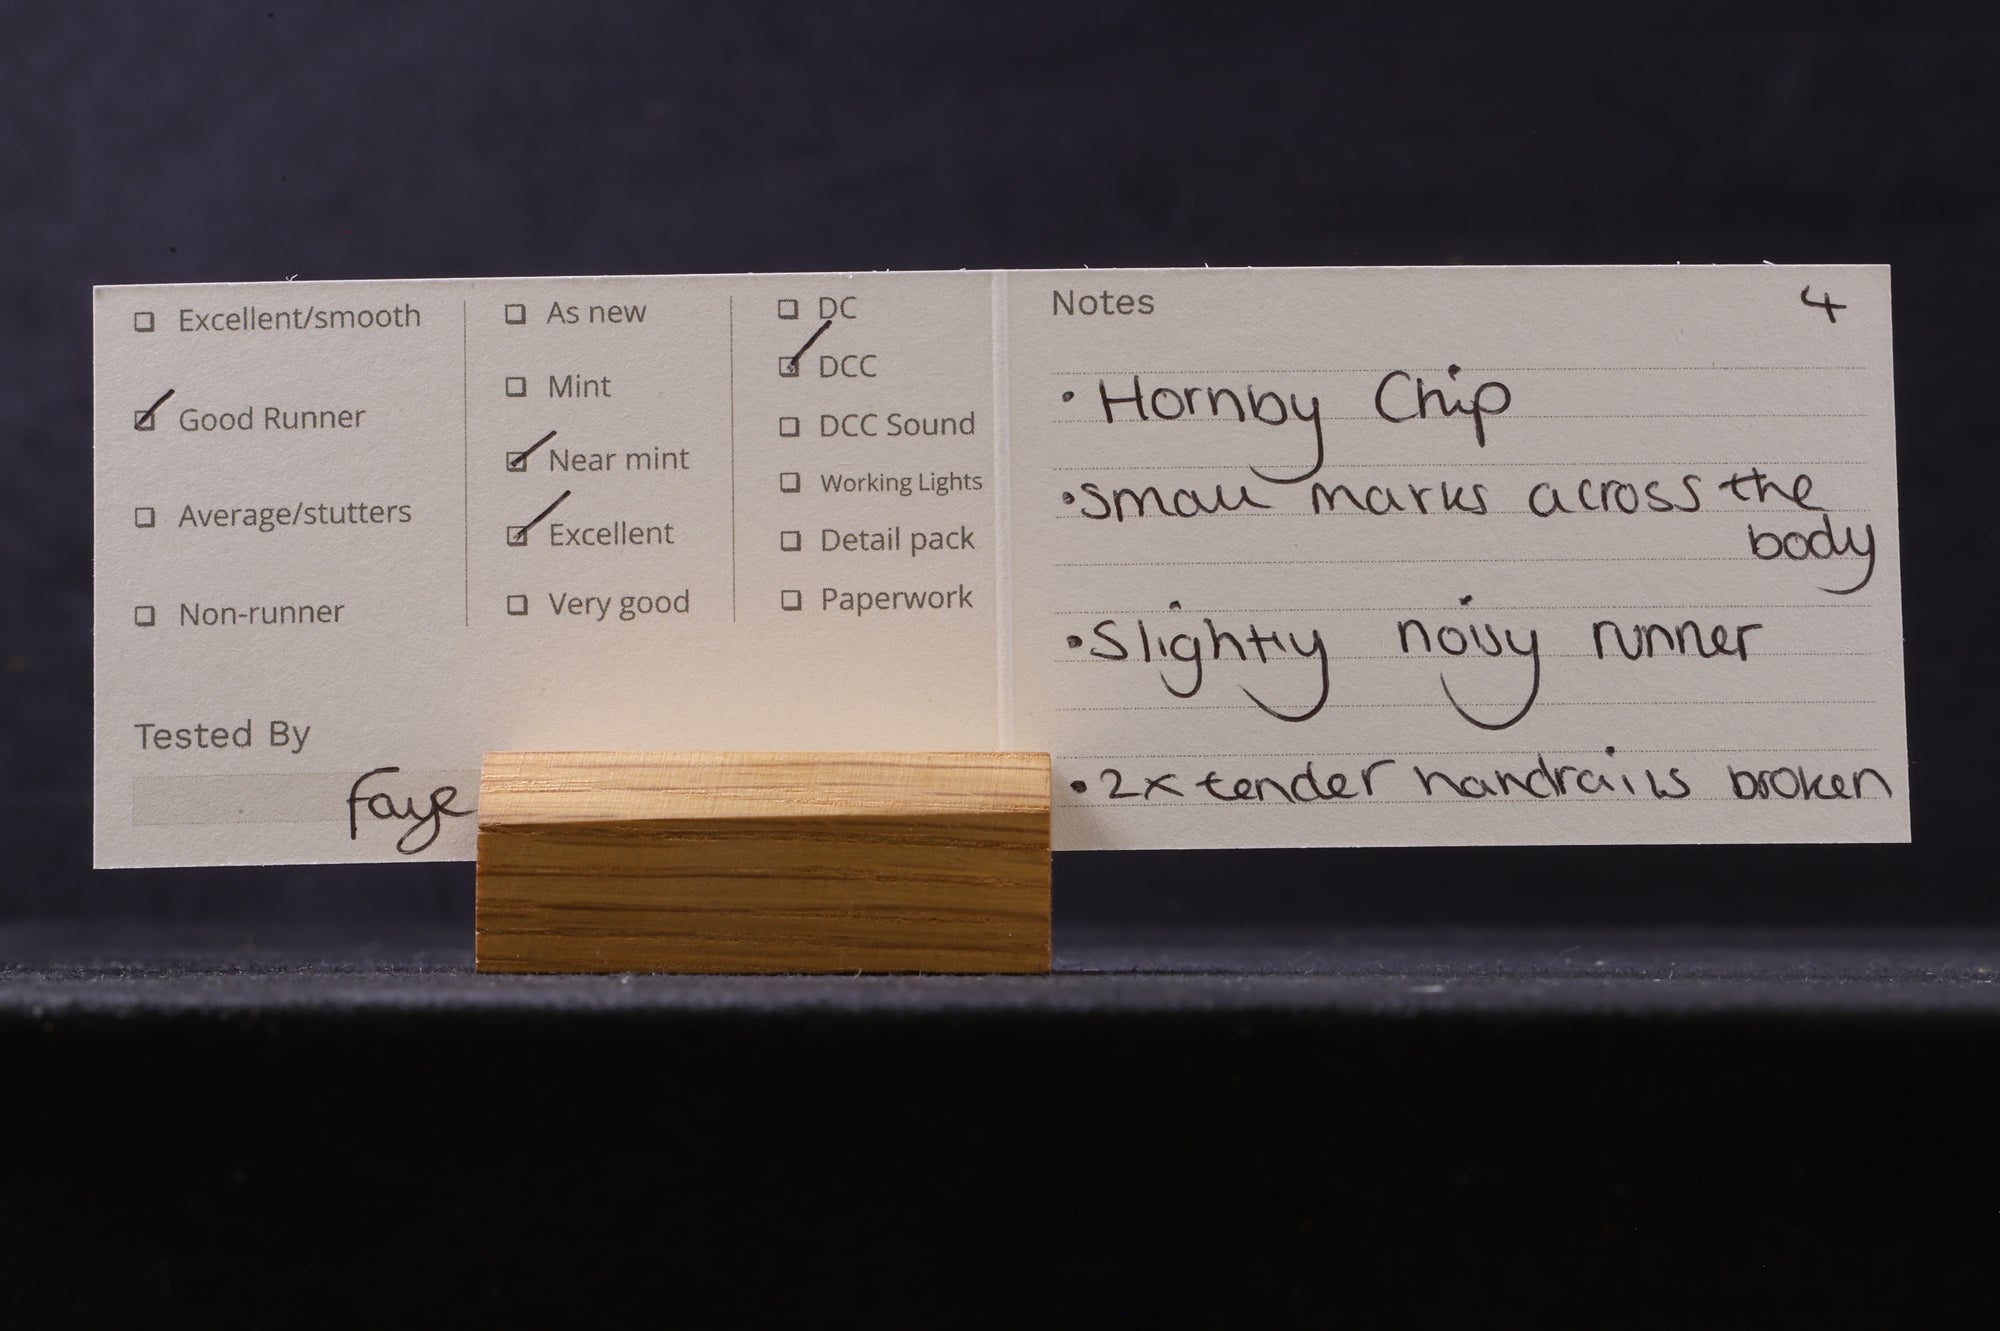 Excellent/smooth
Good Runner
Average/stutters
Non-runner
Tested By
Faye
As new
Mint
Near mint
Excellent
Very good
DC
DCC
DCC Sound
Working Lights
Detail pack
Paperwork
Notes 4
• Hornby Chip
• small marks across the
body
• Slightly noisy runner
• 2x tender handrails broken